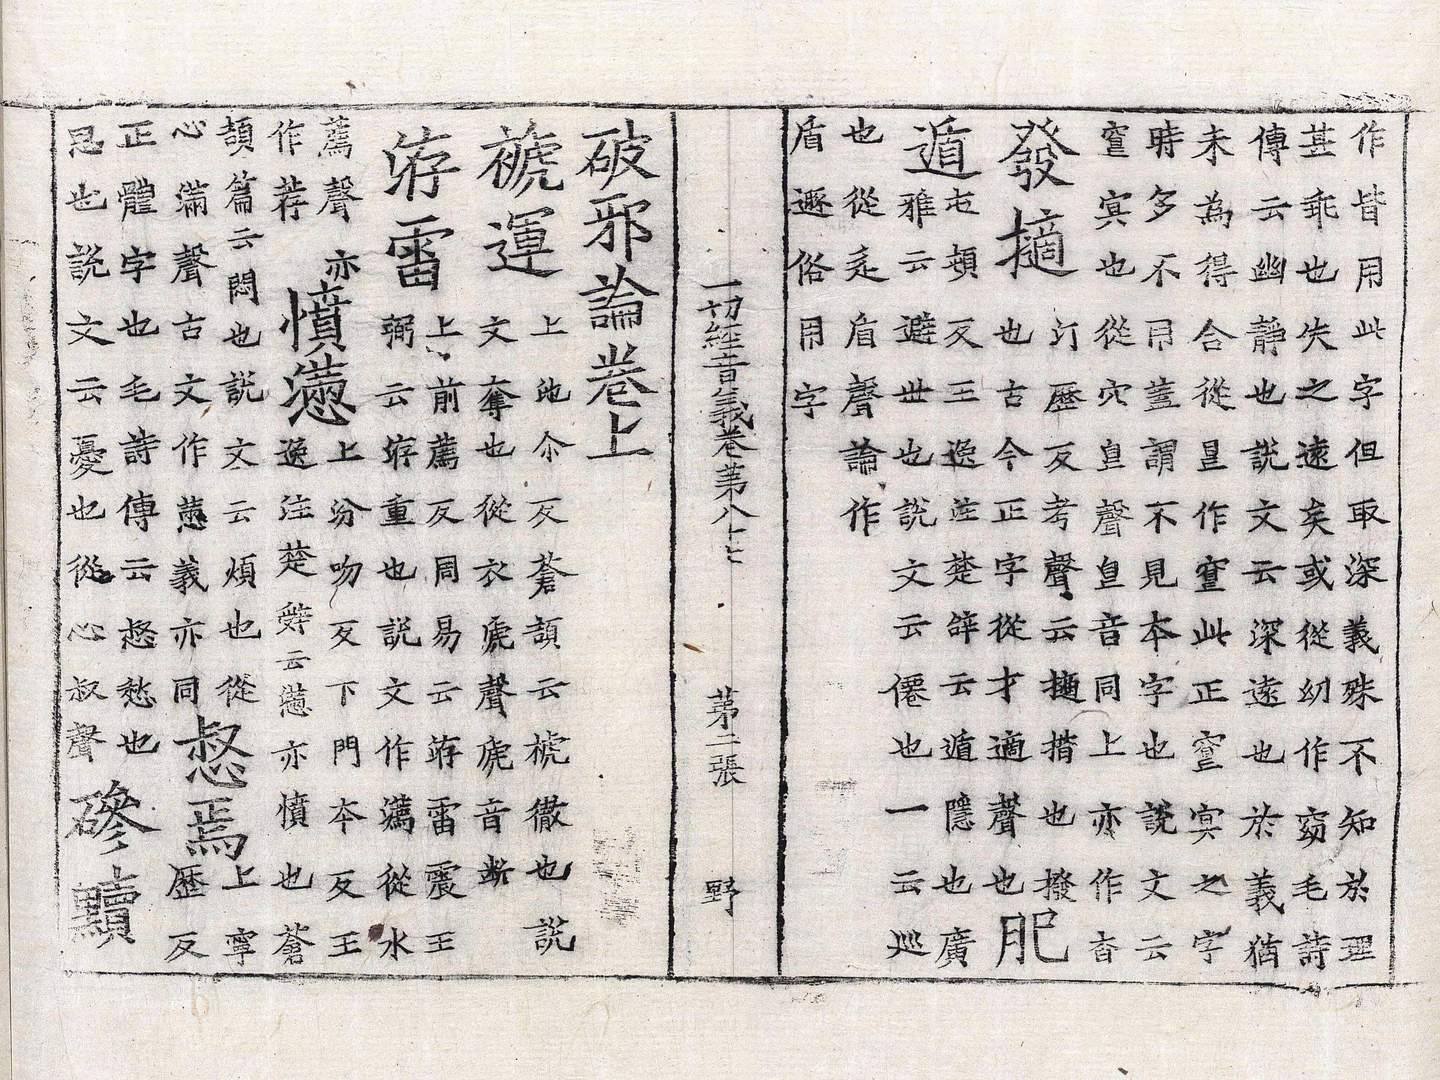 作皆用此字但取深義殊不知於理
甚乖也失之遠矣或從幼作窈毛詩
傳云幽靜也說文云深遠也於義猶
未為得合從作此正冥之字
時多不用蓋謂不見本字也說文云
冥也從穴聲音同上亦作杳
發擿
汀歷反考聲云擿揩也撥
也古今正字從才適聲也
肥
遁
屯頓反王逸注楚辝云遁隱也廣
雅云避世也說文云僊也一云巡
也從辵盾聲論作
盾遯俗用字
一切經音義卷第八十七 第二張 野
破邪論卷上
褫運
上池尒反蒼頡云褫徹也說
文奪也從衣虒聲虒音斯
洊雷
上前薦反周易云洊雷震王
弼云洊重也說文作瀳從水
薦聲亦
作荐
憤懣
上汾吻反下門本反王
逸注楚辝云懣亦憤也蒼
頡篇云悶也說文云煩也從
心滿聲古文作義亦同
惄焉
上寧
歷反
正體字也毛詩傳云惄愁也
思也說文云憂也從心叔聲
磣黷